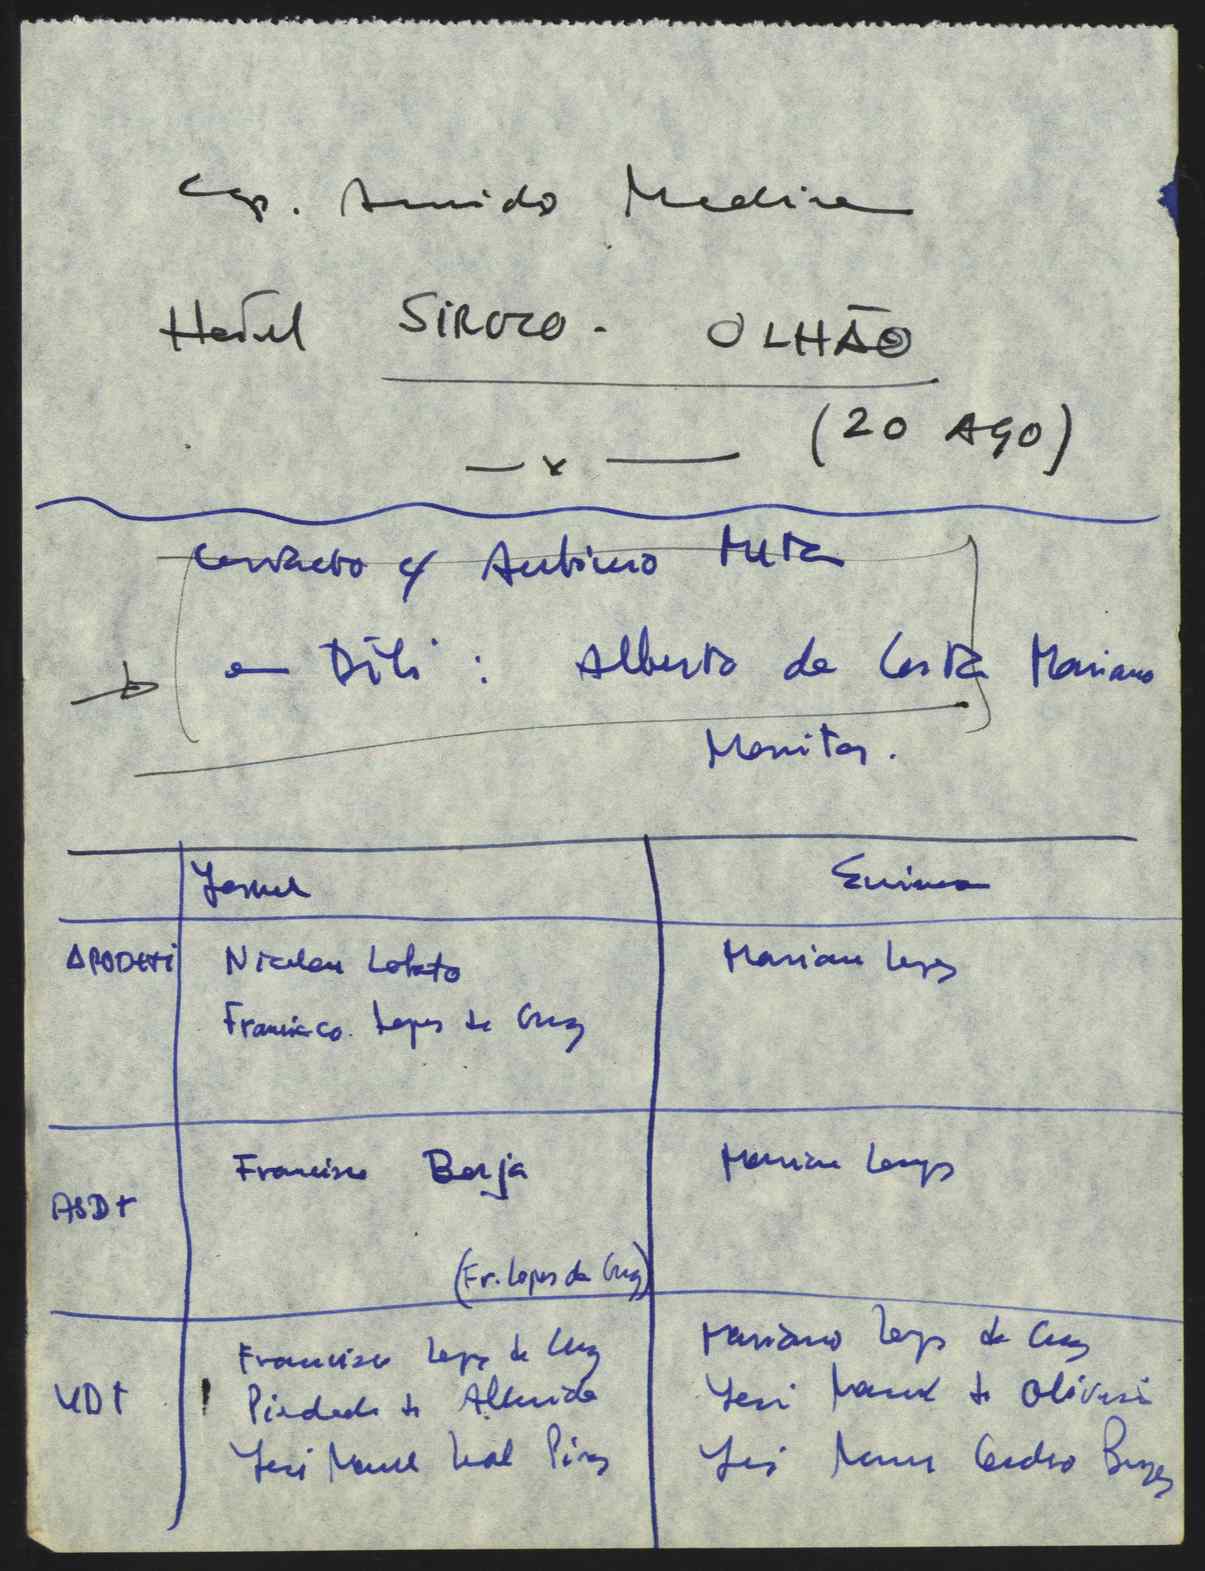 Cap. Arnido Medina
Hotel SIROCO - OLHÃO
(20 AGO)
— x —
Contacto c/ António Mota
em Dili : Alberto da Costa Mariano
Monitor.
Jornal
Ensino
APODETI
Nicolau Lobato
Mariano Lopes
Francisco Lopes da Cruz
ASDT
Francisco Borja
Mariano Lopes
(Fr. Lopes da Cruz)
UDT
Francisco Lopes da Cruz
Mariano Lopes da Cruz
Piedade de Almeida
José Manuel de Oliveira
José Manuel Leal Pires
José